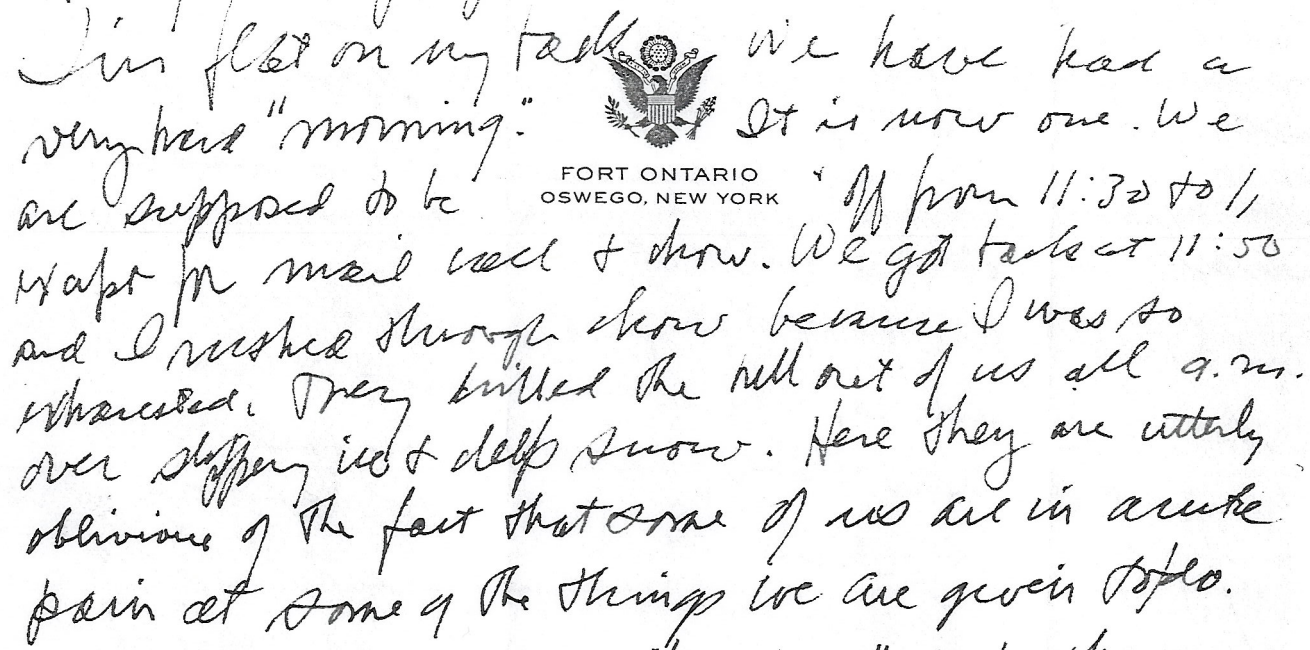 I'm flat on my back We have had a
very hard "morning." It is now one. We
FORT ONTARIO
OSWEGO, NEW YORK
are supposed to be off from 11:30 to 1,
except for mail call & chow. We got back at 11:50
and I rushed through chow because I was so
exhausted. They drilled the hell out of us all a.m.
over slippery ice & deep snow. Here they are utterly
oblivious of the fact that some of us are in acute
pain at some of the things we are given to do.